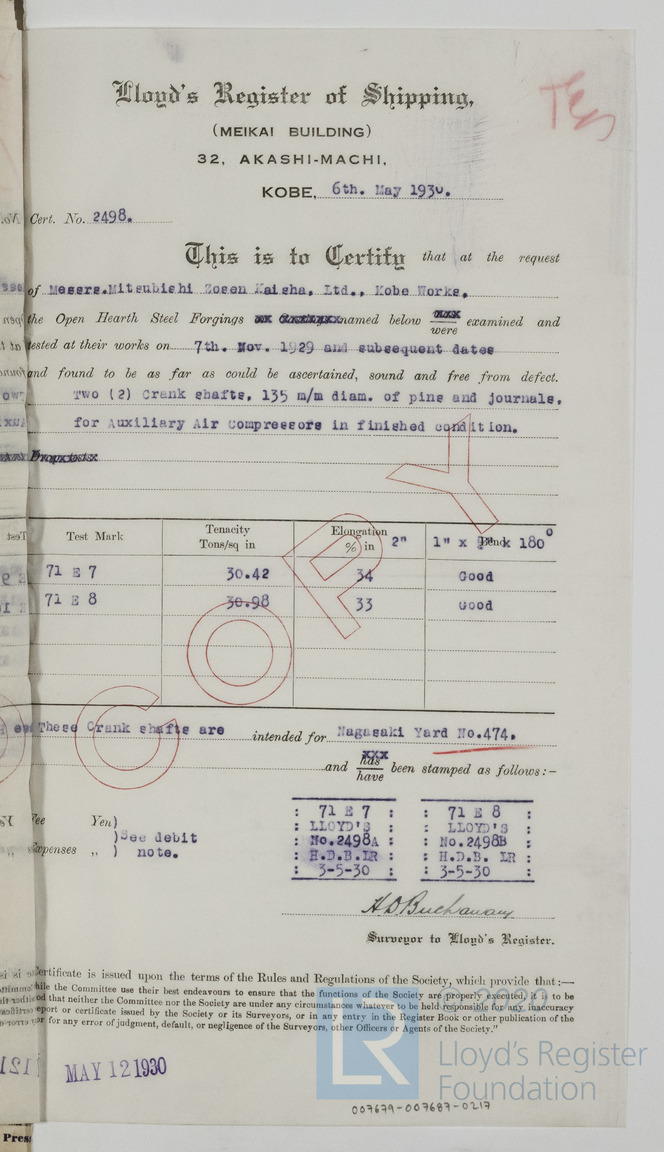 Lloyd's Register of Shipping,
(MEIKAI BUILDING)
32, AKASHI-MACHI,
KOBE, 6th. May 1930.
Yes
Cert. No. 2498.
This is to Certify that at the request
of Messrs.Mitsubishi Zosen Kaisha, Ltd., Kobe Works,
the Open Hearth Steel Forgings named below xxx were examined and
tested at their works on 7th. Nov. 1929 and subsequent dates
and found to be as far as could be ascertained, sound and free from defect.
Two (2) Crank shafts, 135 m/m diam. of pins and journals,
for Auxiliary Air Compressors in finished condition.
Test Mark Tenacity Tons/sq in Elongation % in 2" 1" x Bend x 180°
71 E 7 30.42 34 Good
71 E 8 30.98 33 Good
COPY
These Crank shafts are intended for Nagasaki Yard No.474.
and has xxx have been stamped as follows:—
Fee Yen)
)See debit
Expenses „ ) note.
: 71 E 7 : : 71 E 8 :
: LLOYD'S : : LLOYD'S :
: No.2498A : : No.2498B :
: H.D.B.LR : : H.D.B. LR :
: 3-5-30 : : 3-5-30 :
H D Buchanan
Surveyor to Lloyd's Register.
certificate is issued upon the terms of the Rules and Regulations of the Society, which provide that:—
while the Committee use their best endeavours to ensure that the functions of the Society are properly executed, it is to be
that neither the Committee nor the Society are under any circumstances whatever to be held responsible for any inaccuracy
report or certificate issued by the Society or its Surveyors, or in any entry in the Register Book or other publication of the
or for any error of judgment, default, or negligence of the Surveyors, other Officers or Agents of the Society."
MAY 12 1930
© 2020
LR
Lloyd's Register
Foundation
007679-007687-0217
Press